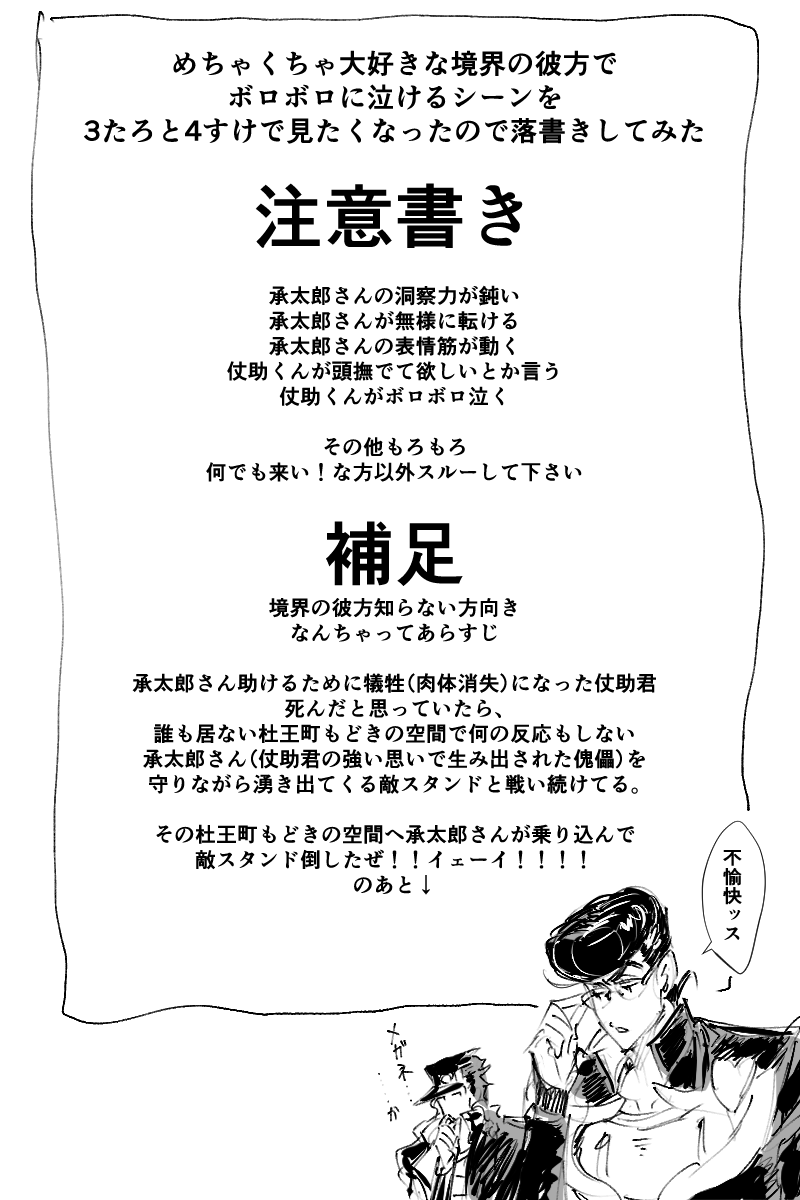 めちゃくちゃ大好きな境界の彼方で
ボロボロに泣けるシーンを
3たろと4すけで見たくなったので落書きしてみた
注意書き
承太郎さんの洞察力が鈍い
承太郎さんが無様に転ける
承太郎さんの表情筋が動く
仗助くんが頭撫でて欲しいとか言う
仗助くんがボロボロ泣く
その他もろもろ
何でも来い！な方以外スルーして下さい
補足
境界の彼方知らない方向き
なんちゃってあらすじ
承太郎さん助けるために犠牲(肉体消失)になった仗助君
死んだと思っていたら、
誰も居ない杜王町もどきの空間で何の反応もしない
承太郎さん(仗助君の強い思いで生み出された傀儡)を
守りながら湧き出てくる敵スタンドと戦い続けてる。
その杜王町もどきの空間へ承太郎さんが乗り込んで
敵スタンド倒したぜ！！イェーイ！！！！
のあと↓
不愉快ッス
メガネ……か